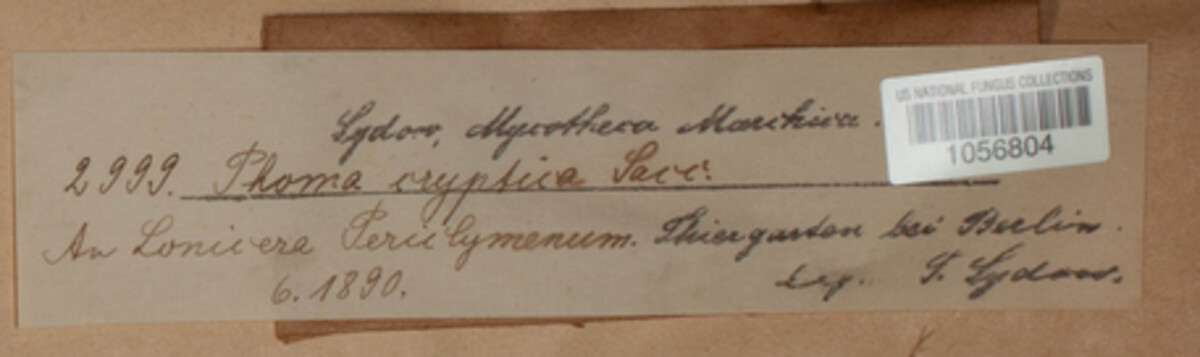 Sydow, Mycotheca Marchica.
US NATIONAL FUNGUS COLLECTIONS
1056804
2999. Phoma cryptica Sacc.
An Lonicera Periclymenum. Thiergarten bei Berlin.
6. 1890. leg. P. Sydow.